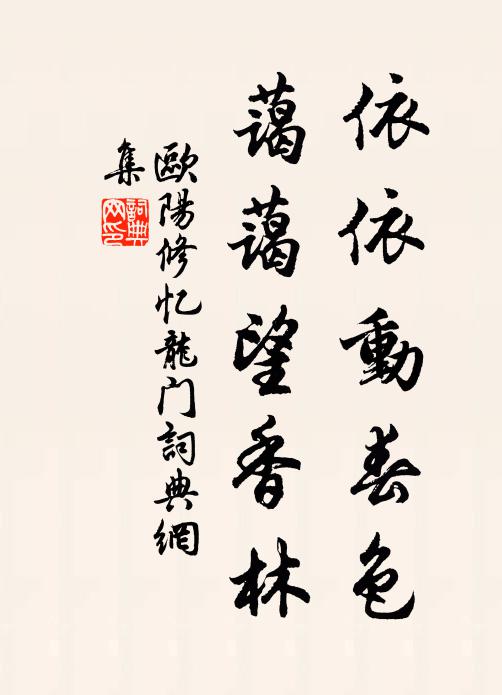 依依動春色
藹藹望香林
歐陽修忆龍门詞典網
集
詞典網印